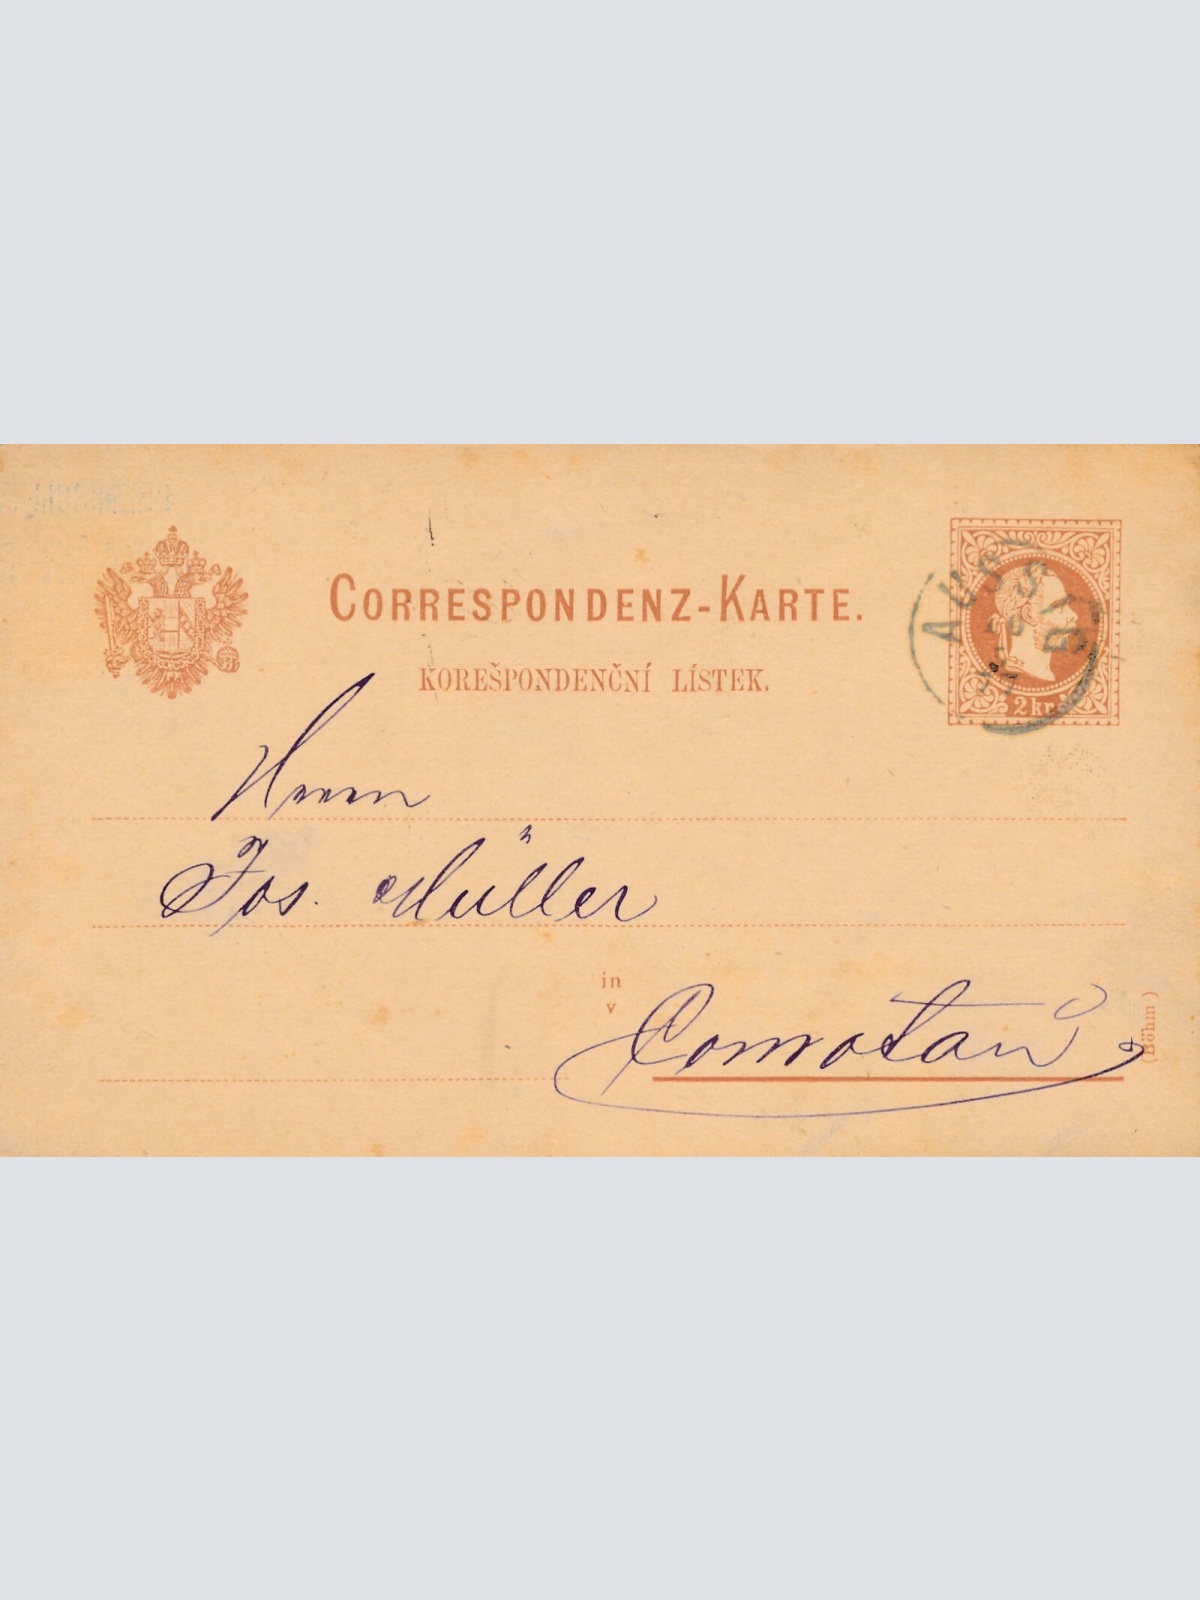 CORRESPONDENZ-KARTE.
KOREŠPONDENČNÍ LÍSTEK.
AUSSIG
2 kr.
Herrn
Jos. Müller
in
v
Comotau
(Böhm)